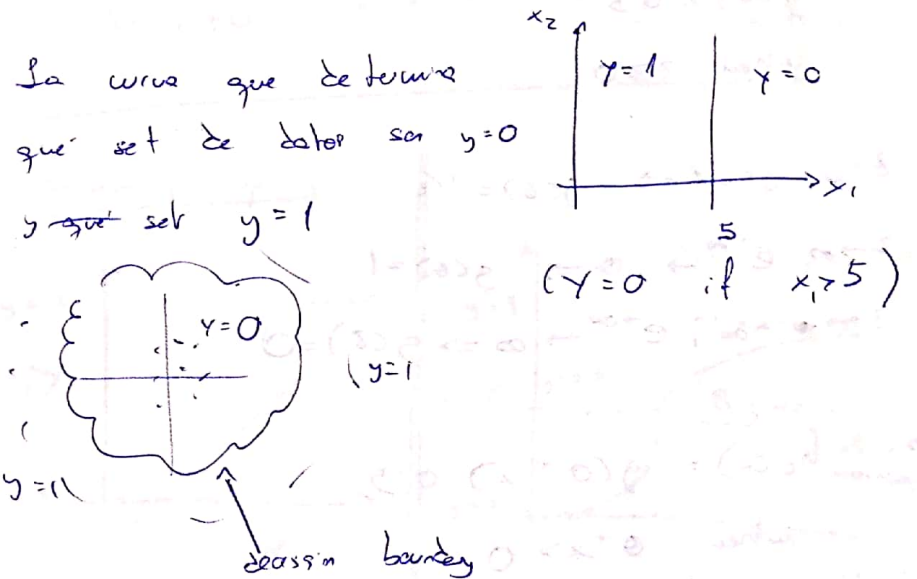 La curva que determina
qué set de datos son y=0
y qué set y=1
x2
y=1
y=0
x1
5
(Y=0 if x1>5)
Y=0
y=1
y=1
decission boundary